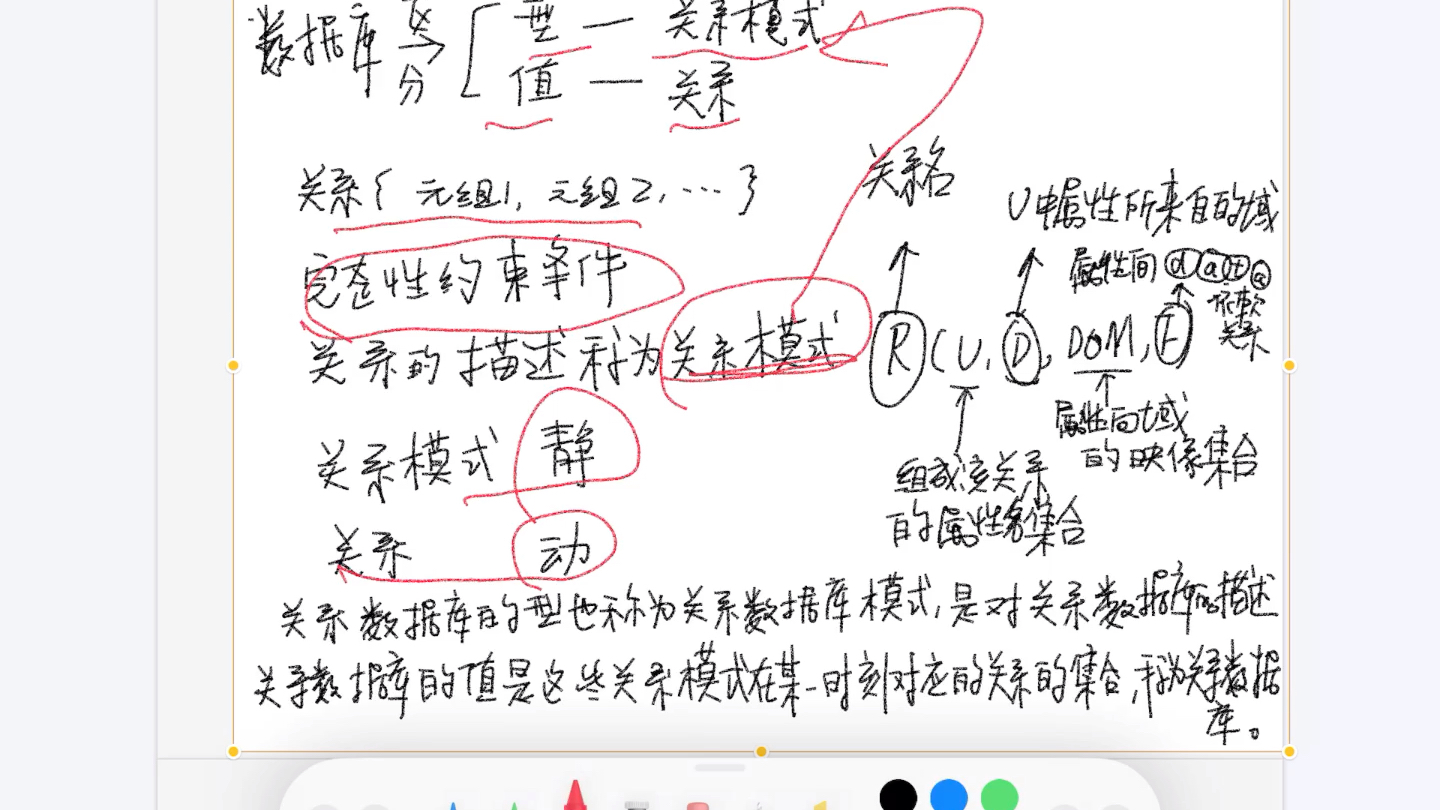 数据库 区分 型 — 关系模式
值 — 关系
关系{元组1, 元组2, …}
完整性约束条件
关系的描述称为关系模式
关系模式 静
关系 动
关系名
U中属性所来自的域
属性间 data
依赖
关系
R(U, D, DOM, F)
属性向域
的映像集合
组成该关系
的属性名集合
关系数据库的型也称为关系数据库模式,是对关系数据库的描述
关系数据库的值是这些关系模式在某一时刻对应的关系的集合,称为关系数据
库。